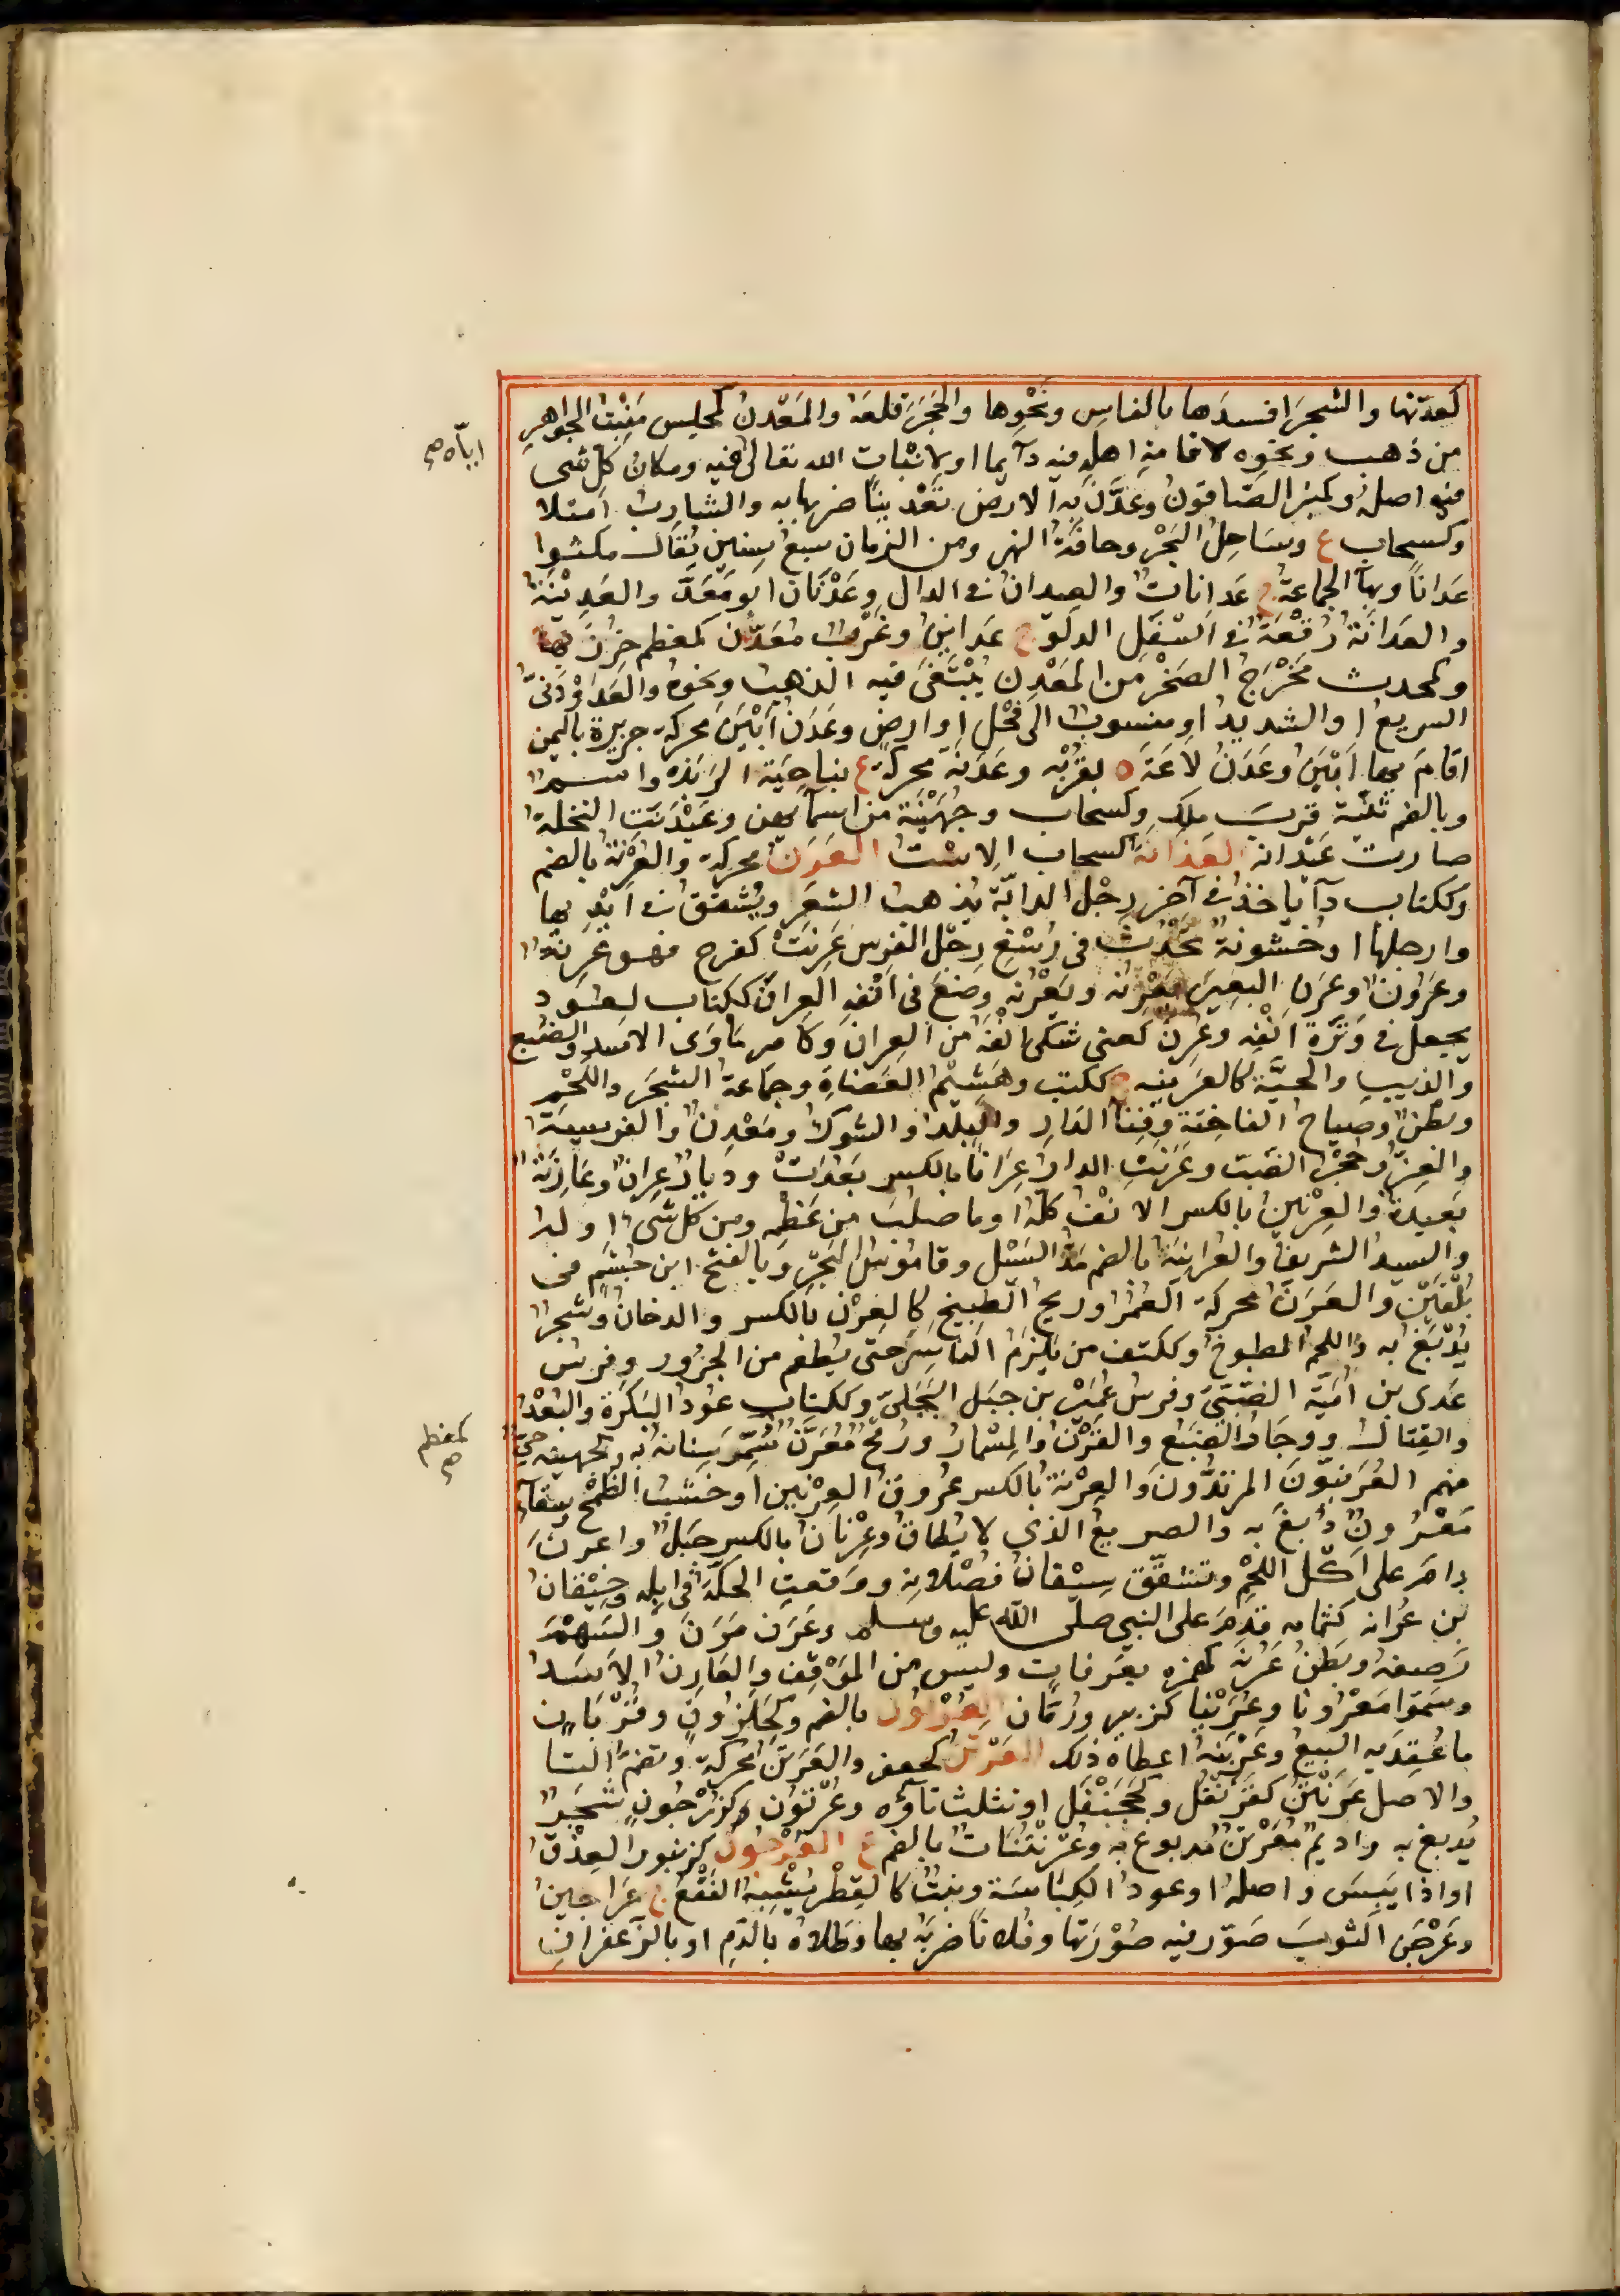 كعدّنها والشجرَ افسدَها بالفاسِ ونحْوِها والحَجَرَ قلعَهُ والمَعْدِن كمجلِس مَنْبِت الجَواهِرِ
من ذهب ونحوِه لاقامةِ اهلِه فيه دآيما او لاثباتِ الله تعالى فيه ومكان كلّ شى
فيه اصلهُ وكمنبر الصّاقورُ وعَدَّن به الارض تعْدينًا ضربها به والشارب امتلا
وكسحاب ع وساحِل البَحْر وحافَة النهر ومن الزمان سبع سِنين يقال مكثوا
عَدانًا وبهآ الجماعة ج عَدانات والعِدان فى الدال وعَدْنان ابو مَعَدّ والعَدِينَة
والعَدانَة رُقعَة فى اسْفل الدلو ج عَداين وغَرْب مُعَدَّن كمعظم خُرز بها
وكمحدث مُخْرج الصَخْر من المَعْدِن يُبْتَغى فيه الذهب ونحوه والعَدَوْدَنىّ
السريع او الشديد او منسوب الى فحْلٍ او ارض وعَدَن ابْيَن محركة جزيرة باليمن
اقامَ بها ابْيَن وعَدَن لاعَةَ ة بقرْبه وعَدَنَة محركة ع بناحِيَة الرَبَذة واسم
وبالضم ثنيّة قربَ ملل وكسحاب وجُهَيْنة من اسمآئهن وعَيْدَنَتِ النخلة
صارت عَيْدانة العَذانَة كسحاب الاسْت العَرَن محركة والعُرْنة بالضم
وككتاب دآ ياخذ فى آخر رِجْل الدابّة يُذهب الشعَر ويُشَقق فى ايديها
وارجلها او خُشونة تَحْدُث فى رُسْغ رِجْل الفرس عَرِنَت كفرح فهو عَرِنة
وعَرون وعَرَن البعيرَ يَعْرِنه ويَعْرُنه وضعَ فى انفه العِران ككتاب لعود
يجعل فى وَتَرَة انفِه وعُرِن كعنى شكى انْفَه من العِران وكامير مأوى الاسد والضبع
والذيب والحيَّة كالعَرينه ج ككتب وهَشِيْم العضاه وجماعة الشجَر واللحْم
وبطن وصياح الفاخِتة وفِنآ الدار والبلد والشوك ومَعْدِن والفريسة
والعِزّ وجُحْر الضّبّ وعَرَنَتِ الدار عِرانًا بالكسر بَعُدَت وديار عِران وعارِنة
بَعيدة والعِرْنين بالكسر الانْف كلّه او ما صلب من عَظمِه ومن كل شى اوله
والسيد الشريف والعُرانِيَة بالضم مَدّ السَيْل وقاموس البَحْر وبالفتح ابن جُشَم فى
بُلْقَيْن والعَرَن محركة الغَمَر وريح الطبيخ كالعِرْن بالكسر والدخان وشجر
يُدْبَغ به واللحم المطبوخ وككتف من يَلزَم الياسر حتى يُطعَم من الجزور وفرس
عَدى بن امَيّة الضَبّىّ وفرس عُمَيْر بن جبَل البَجَلى وككتاب عود البَكَرَة والبُعْد
والقِتال ووجار الضبع والقَرْن والمِسْمار ورُمْح مُعَرَّن سُمِّر سِنانه به وكجهينة حىّ
منهم العُرَنيّونَ المرتدُّون والعِرْنة بالكسر عُروق العِرْنين او خشب الظِمخ وسقآء
مَعْرون دُبغ به والصريع الذى لا يُطاق وعِرْنان بالكسر جبَل واعرن
دام على اكل اللحْم وتشقّق سيقان فُصْلانِه ووقعَت الحكّة فى ابله وخِيْفان
بن عُرانه كثمامه قدِم على النبى صلى الله عليه وسلم وعَرَن مَرَن والسَهْم
رَصفه وبَطْن عُرنة كهمزه بعَرفات وليس من المَوْقِف والعارِن الاسَد
وسَمّوا مَعْرونا وعُرَيْنا كزبير ورُمّان العُرْبون بالضم وكحَلَزون وقُرْبان
ما عُقد به البَيع وعَرْبَنه اعطاه ذلك العَرْتن كجعفر والعَرَتن محركة وتضمّ التا
والاصل عَرَنْتُن كقَرَنْفُل وكجَحَنْفَل او تثلث تاؤه وعُرْتون كزَرْجون شجَر
يُدبغ به واديم مُعَرْتَن مُدبوغ به وعُرَنْتُنات بالضم ع العُرجون كزنبور العِذْق
او اذا يَبِسَ واصله او عود الكِباسَة ونبت كالفِطْر يُشبه الفَقْع ج عَراجين
وعَرْجَن الثوب صَوّر فيه صُوْرَتها وفلانًا ضربَه بها وطلاهُ بالدّم او بالزعفران
اياه صح
كمعظم صح